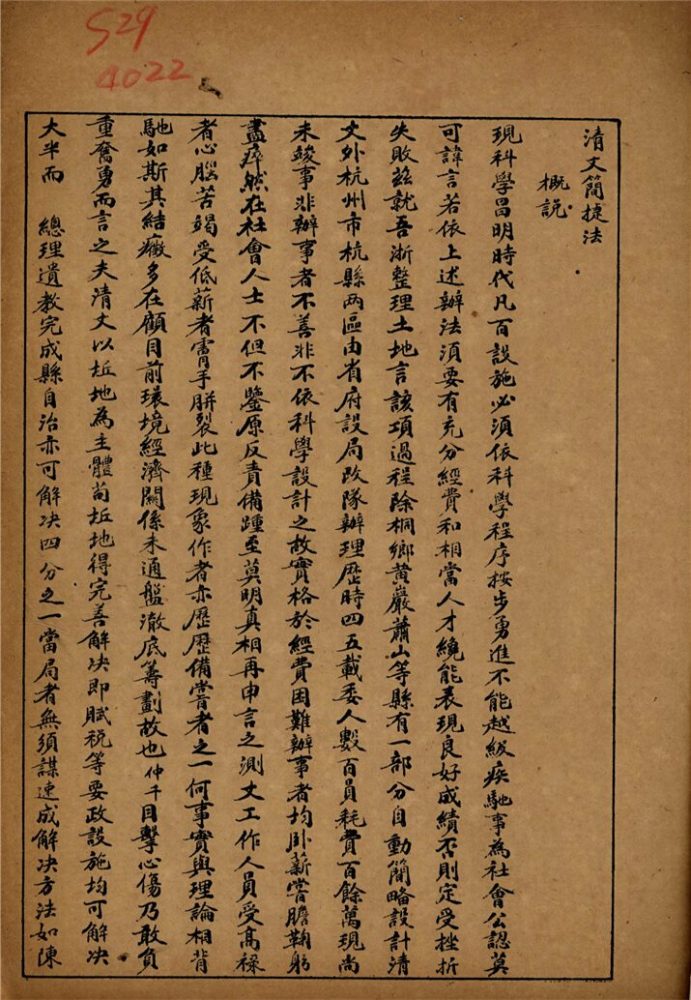 529
4022
清丈簡捷法
概說
現科學昌明時代凡百設施必須依科學程序按步勇進不能越級疾馳事為社會公認莫
可諱言若依上述辦法須要有充分經費和相當人才纔能表現良好成績否則定受挫折
失敗茲就吾浙整理土地言該項過程除桐鄉黃巖蕭山等縣有一部分自動簡略設計清
丈外杭州市杭縣两區由省府設局政隊辦理歷時四五載委人數百員耗費百餘萬現尚
未竣事非辦事者不善非不依科學設計之故實格於經費困難辦事者均卧薪嘗膽鞠躬
盡瘁然在社會人士不但不鑒原反責備踵至莫明真相再申言之測丈工作人員受高祿
者心腦苦竭受低薪者胥手胼裂此種現象作者亦歷歷備嘗者之一何事實與理論相背
馳如斯其結癥多在顧目前環境經濟關係未通盤澈底籌劃故也仲千目擊心傷乃敢負
重奮勇而言之夫清丈以坵地為主體茍坵地得完善解决即賦税等要政設施均可解决
大半而 總理遺教完成縣自治亦可解决四分之一當局者無須謀速成解决方法如陳